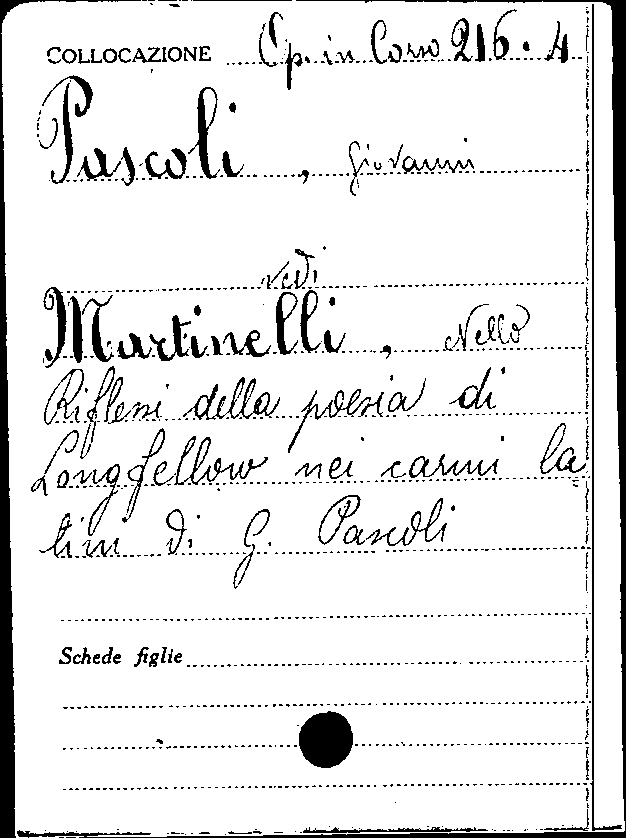 COLLOCAZIONE Op. in Corso 216. 4
Pascoli, Giovanni
vedi
Martinelli, Nello
Riflessi della poesia di
Longfellow nei carmi la
tini di G. Pascoli
Schede figlie